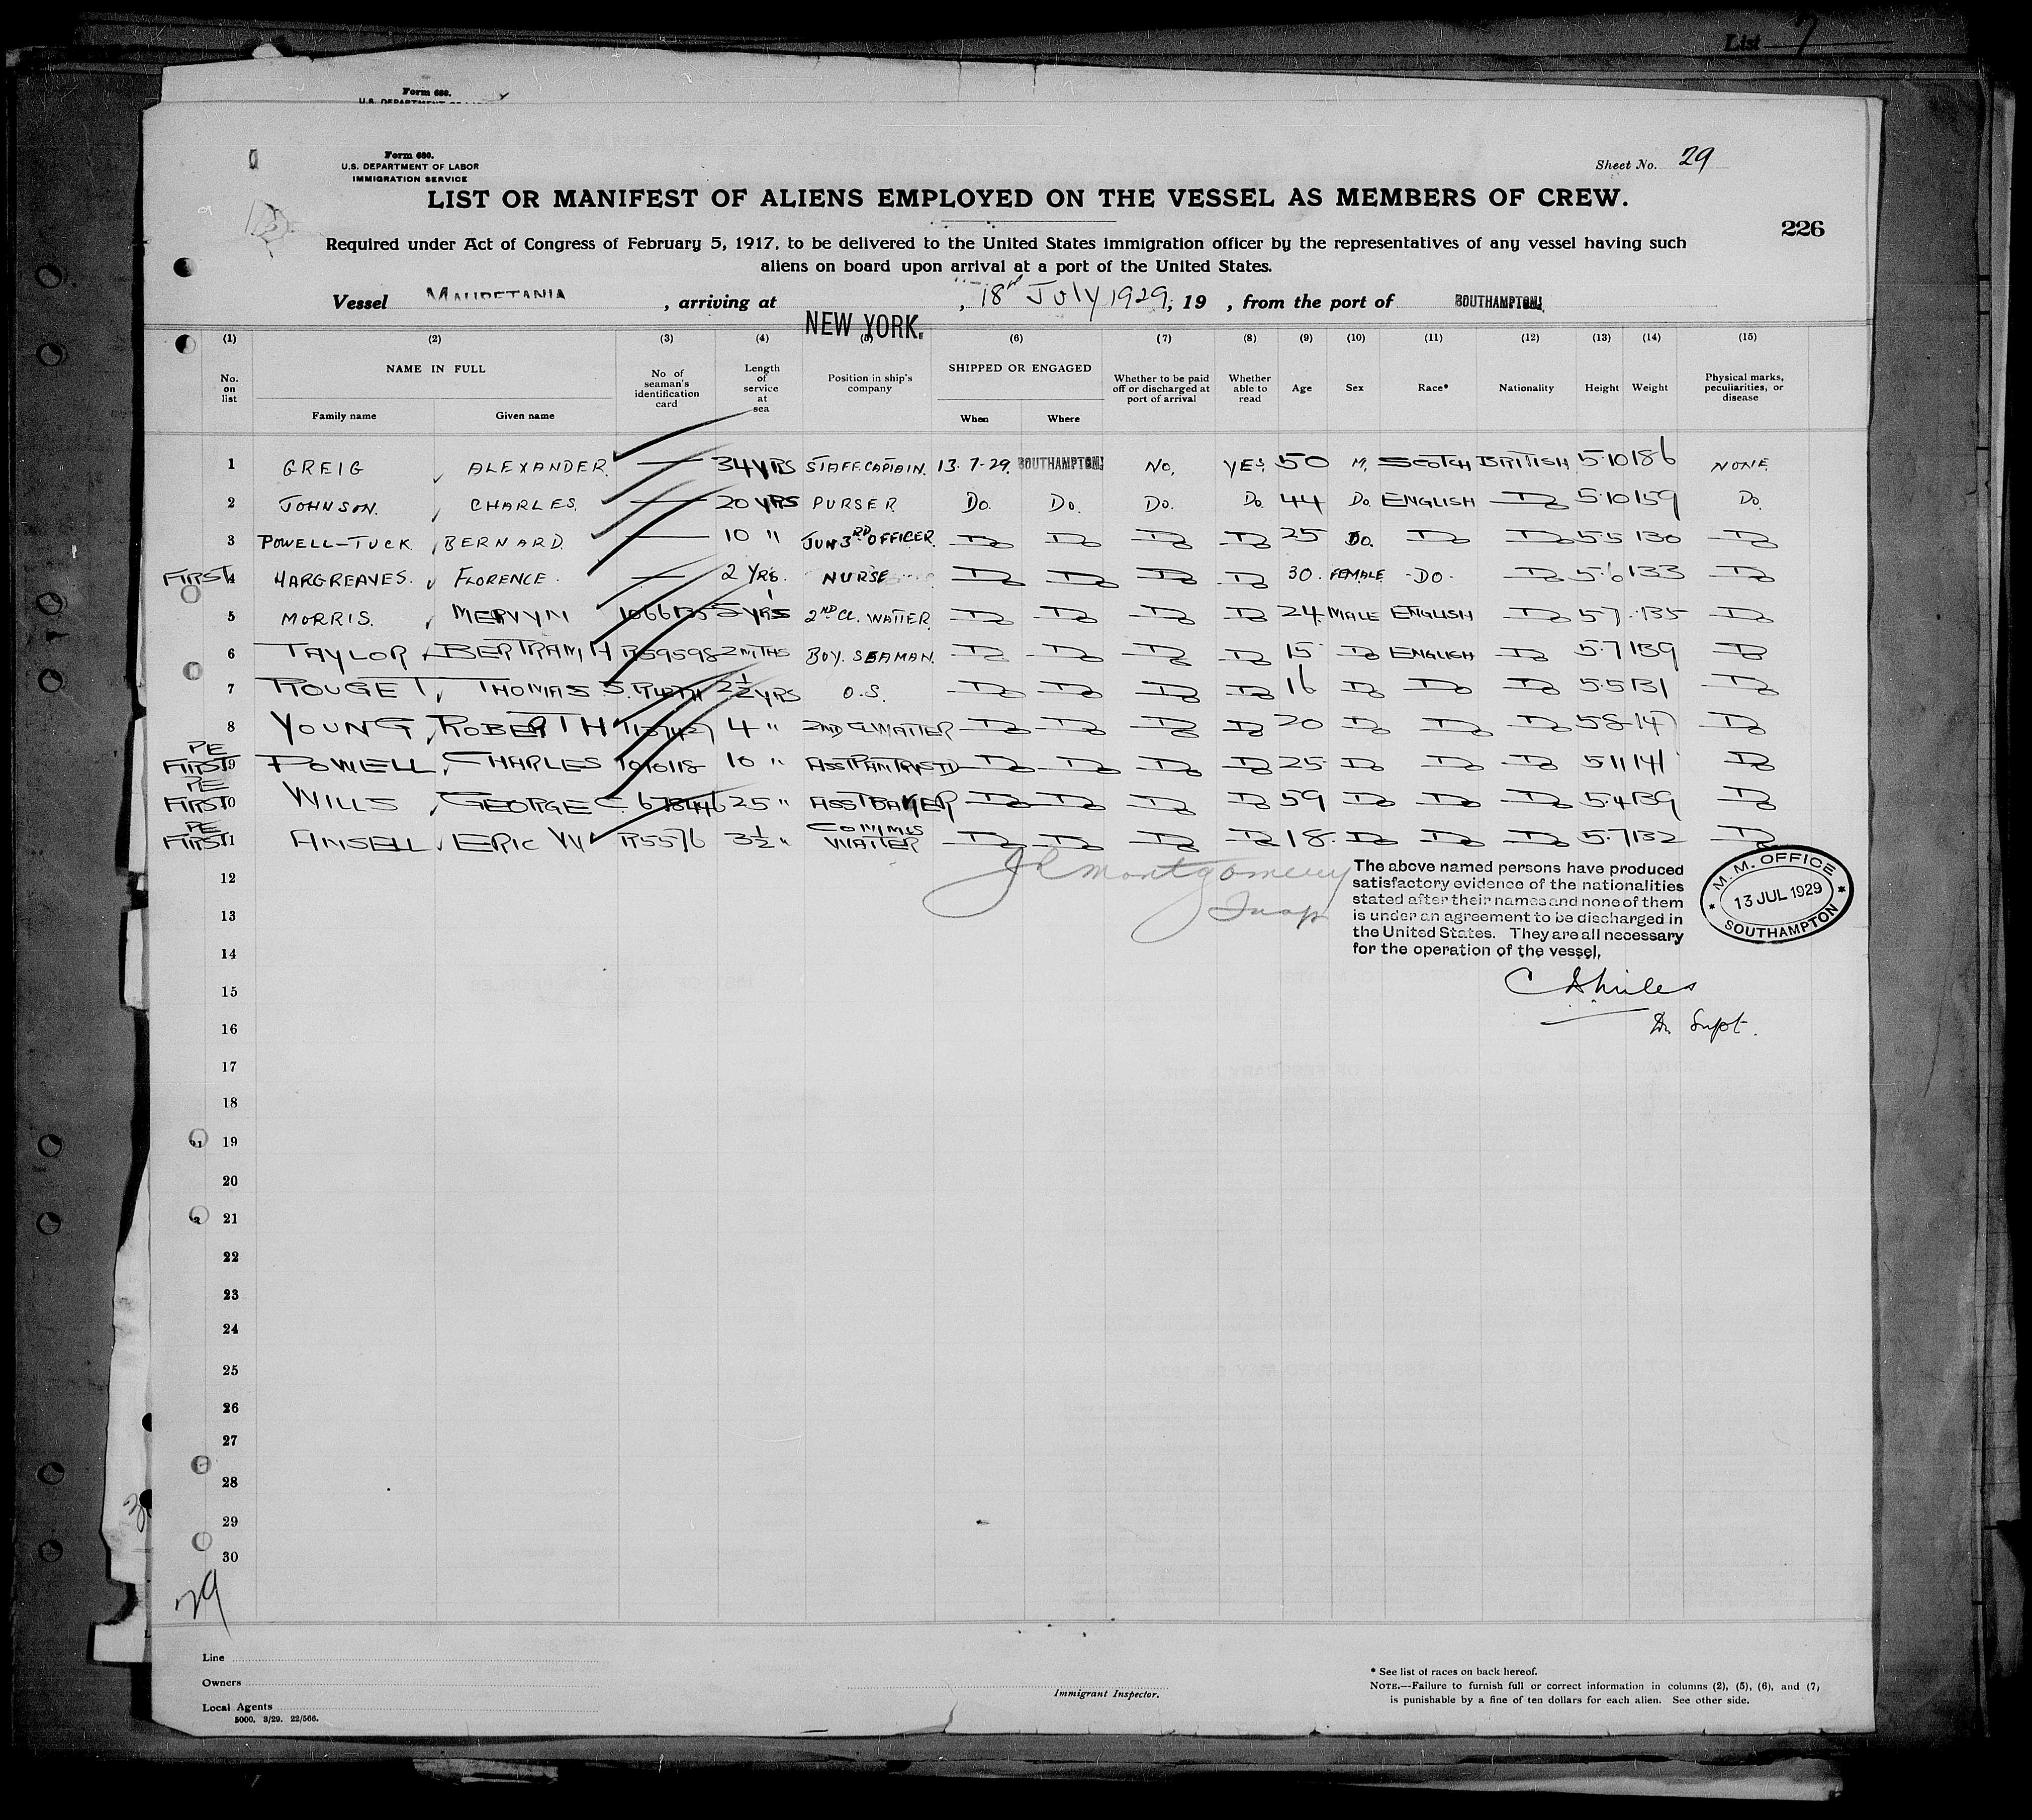 List 7
Form 680.
U.S. DEPARTMENT OF LABOR
Form 680.
U.S. DEPARTMENT OF LABOR
IMMIGRATION SERVICE
Sheet No. 29
LIST OR MANIFEST OF ALIENS EMPLOYED ON THE VESSEL AS MEMBERS OF CREW.
226
Required under Act of Congress of February 5, 1917, to be delivered to the United States immigration officer by the representatives of any vessel having such
aliens on board upon arrival at a port of the United States.
Vessel MAURETANIA, arriving at NEW YORK., 18th July 1929, 19 , from the port of SOUTHAMPTON.
(1) (2) (3) (4) (5) (6) (7) (8) (9) (10) (11) (12) (13) (14) (15)
No. on list NAME IN FULL Family name Given name No. of seaman's identification card Length of service at sea Position in ship's company SHIPPED OR ENGAGED When Where Whether to be paid off or discharged at port of arrival Whether able to read Age Sex Race* Nationality Height Weight Physical marks, peculiarities, or disease
1 GREIG ALEXANDER. — 34 YRS STAFF. CAPTAIN. 13.7.29. SOUTHAMPTON. NO, YES, 50 M, SCOTCH BRITISH 5.10 186 NONE.
2 JOHNSON. CHARLES. — 20 YRS PURSER Do. Do. Do. Do. 44 Do. ENGLISH Do 5.10 159 Do.
3 POWELL-TUCK. BERNARD. — 10 " JUN 3RD OFFICER. Do Do Do Do 25 Do. Do Do 5.5 130 Do
FIRST 4 HARGREAVES. FLORENCE. — 2 YRS. NURSE Do Do Do Do 30. FEMALE -DO- Do 5.6 133 Do
5 MORRIS. MERVYN 5 YRS 2ND CL. WAITER. Do Do Do Do 24. MALE ENGLISH Do 5.7 135 Do
6 TAYLOR BERTRAM H R59598 2 MTHS BOY. SEAMAN. Do Do Do Do 15 Do ENGLISH Do 5.7 139 Do
7 ROUGET, THOMAS S. 2½ YRS O.S. Do Do Do Do 16 Do Do Do 5.5 131 Do
8 YOUNG, ROBERT H 4 " 2ND CL WAITER Do Do Do Do 20 Do Do Do 5.8 147 Do
PE
FIRST 9 POWELL, CHARLES 10 " Do Do Do Do 25 Do Do Do 5.11 141 Do
PE
FIRST 10 WILLS, GEORGE C. 25 " ASST BAKER Do Do Do Do 59 Do Do Do 5.4 139 Do
PE
FIRST 11 ANSELL, ERIC W R5576 3½ " COMMIS WAITER Do Do Do Do 18. Do Do Do 5.7 132 Do
12
13
14
15
16
17
18
19
20
21
22
23
24
25
26
27
28
29
30
J R Montgomery
Insp
The above named persons have produced
satisfactory evidence of the nationalities
stated after their names and none of them
is under an agreement to be discharged in
the United States. They are all necessary
for the operation of the vessel.
M.M. OFFICE
* 13 JUL 1929 *
SOUTHAMPTON
Supt.
29
Line
Owners
Local Agents
5000. 3/29. 22/566.
Immigrant Inspector.
* See list of races on back hereof.
NOTE.—Failure to furnish full or correct information in columns (2), (5), (6), and (7)
is punishable by a fine of ten dollars for each alien. See other side.